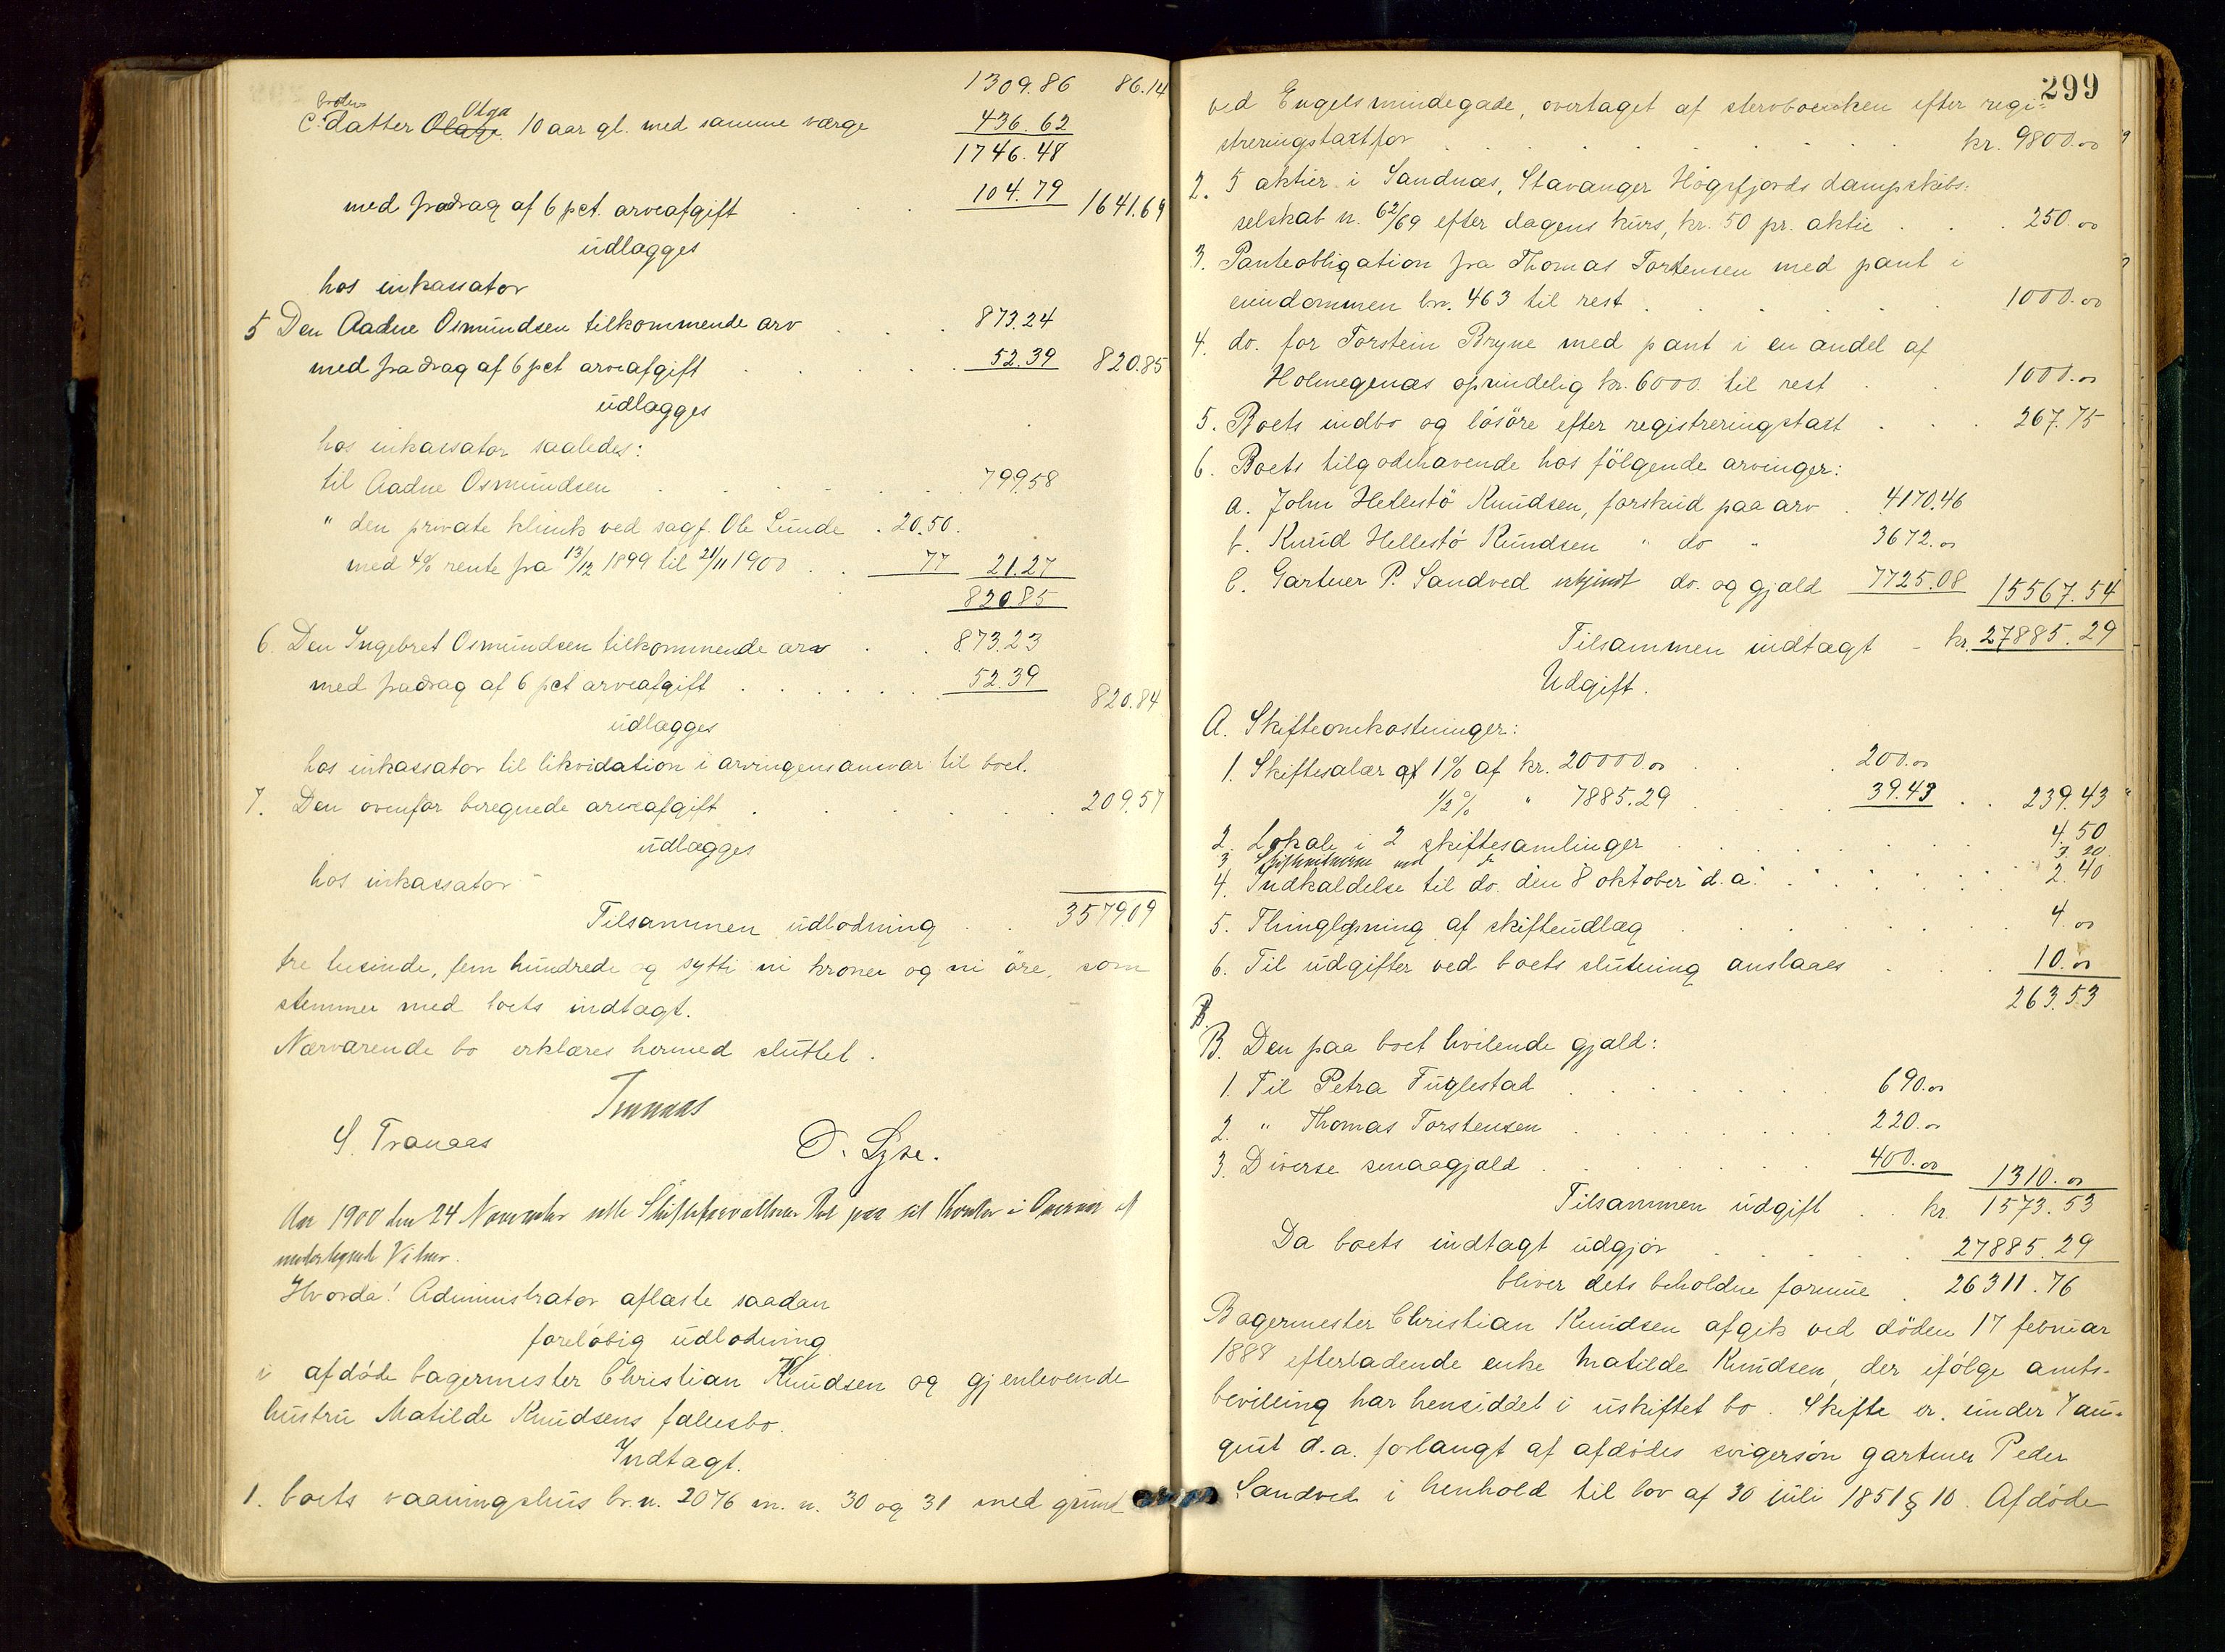 1309.86 86.14
broders
c. datter Olage Olga 10 aar gl. med samme værge 436.62
1746.48
med fradrag af 6 pct. arveafgift . . . 104.79 1641.69
udlægges
hos inkassator
5 Den Aadne Osmundsen tilkommende arv . . . 873.24
med fradrag af 6 pct arveafgift . . . 52.39 820.85
udlægges
hos inkassator saaledes:
til Aadne Osmundsen . . . 799.58
" den private klinik ved sagf. Ole Lunde . 20.50.
med 4% rente fra 13/12 1899 til 21/11 1900 . . 77 21.27
820.85
6. Den Ingebret Osmundsen tilkommende arv . . 873.23
med fradrag af 6 pct arveafgift . . . 52.39 820.84
udlægges
hos inkassator til likvidation i arvingens ansvar til boet.
7. Den ovenfor beregnede arveafgift . . . 209.57
udlægges
hos inkassator
Tilsammen udlodning . . 3579.09
tre tusinde, fem hundrede og sytti ni kroner og ni öre, som
stemmer med boets indtægt.
Nærværende bo erklæres hermed sluttet.
Tranaas
S. Tranaas O. Lyse.
Aar 1900 den 24 November Skifteforvalteren Ret paa sit Kontor i Overvær af
undertegnede Vidner.
Hvorda! Administrator aflæste saadan
foreløbig udlodning
i afdøde bagermester Christian Knudsen og gjenlevende
hustru Matilde Knudsens fællesbo.
Indtægt.
1. boets vaaningshus br.n. 2076 m. n. 30 og 31 med grund
299
ved Engelsmindegade, overtaget af stervboenken efter regi-
streringstaxt for . . . kr. 9800.00
2. 5 aktier i Sandnæs, Stavanger Högsfjords dampskibs-
selskab n. 62/69 efter dagens kurs, kr. 50 pr. aktie . . . 250.00
3. Panteobligation fra Thomas Torstensen med pant i
eiendommen br. 463 til rest . . . 1000.00
4. do. for Torstein Bryne med pant i en andel af
Holmegenæs oprindelig kr. 6000 til rest . . 1000.00
5. Boets indbo og lösöre efter registreringstaxt . . . 267.75
6. Boets tilgodehavende hos fölgende arvinger:
a. John Hellestö Knudsen, forskud paa arv . 4170.46
b. Knud Hellestö Knudsen " do " 3672.00
c. Gartner P. Sandved do. og gjæld 7725.08 15567.54
Tilsammen indtægt - kr. 27885.29
Udgift.
A. Skifteomkostninger:
1. Skiftesalær af 1% af kr. 20000.00 . . . 200.00
1/2% " 7885.29 . . . 39.43 . . 239.43
2. Lokale i 2 skiftesamlinger . . . 4.50
3. 3.20
4. Indkaldelse til do. den 8 oktober d.a. . . . 2.40
5. Thinglysning af skifteudlæg . . . 4.00
6. Til udgifter ved boets slutning anslaaes . . . 10.00
263.53
B.
B. Den paa boet hvilende gjæld:
1. Til Petra Fuglestad . . . 690.00
2. " Thomas Torstensen . . . 220.00
3. Diverse smaagjæld . . . 400.00 1310.00
Tilsammen udgift . . kr. 1573.53
Da boets indtægt udgjør . . . 27885.29
bliver dets beholdne formue . 26311.76
Bagermester Christian Knudsen afgik ved døden 17 februar
1888 efterladende enke Matilde Knudsen, der ifølge amts-
bevilling har hensiddet i uskiftet bo. Skifte er under 7 au-
gust d.a. forlangt af afdødes svigersøn gartner Peder
Sandved i henhold til lov af 30 juli 1851 § 10. Afdøde